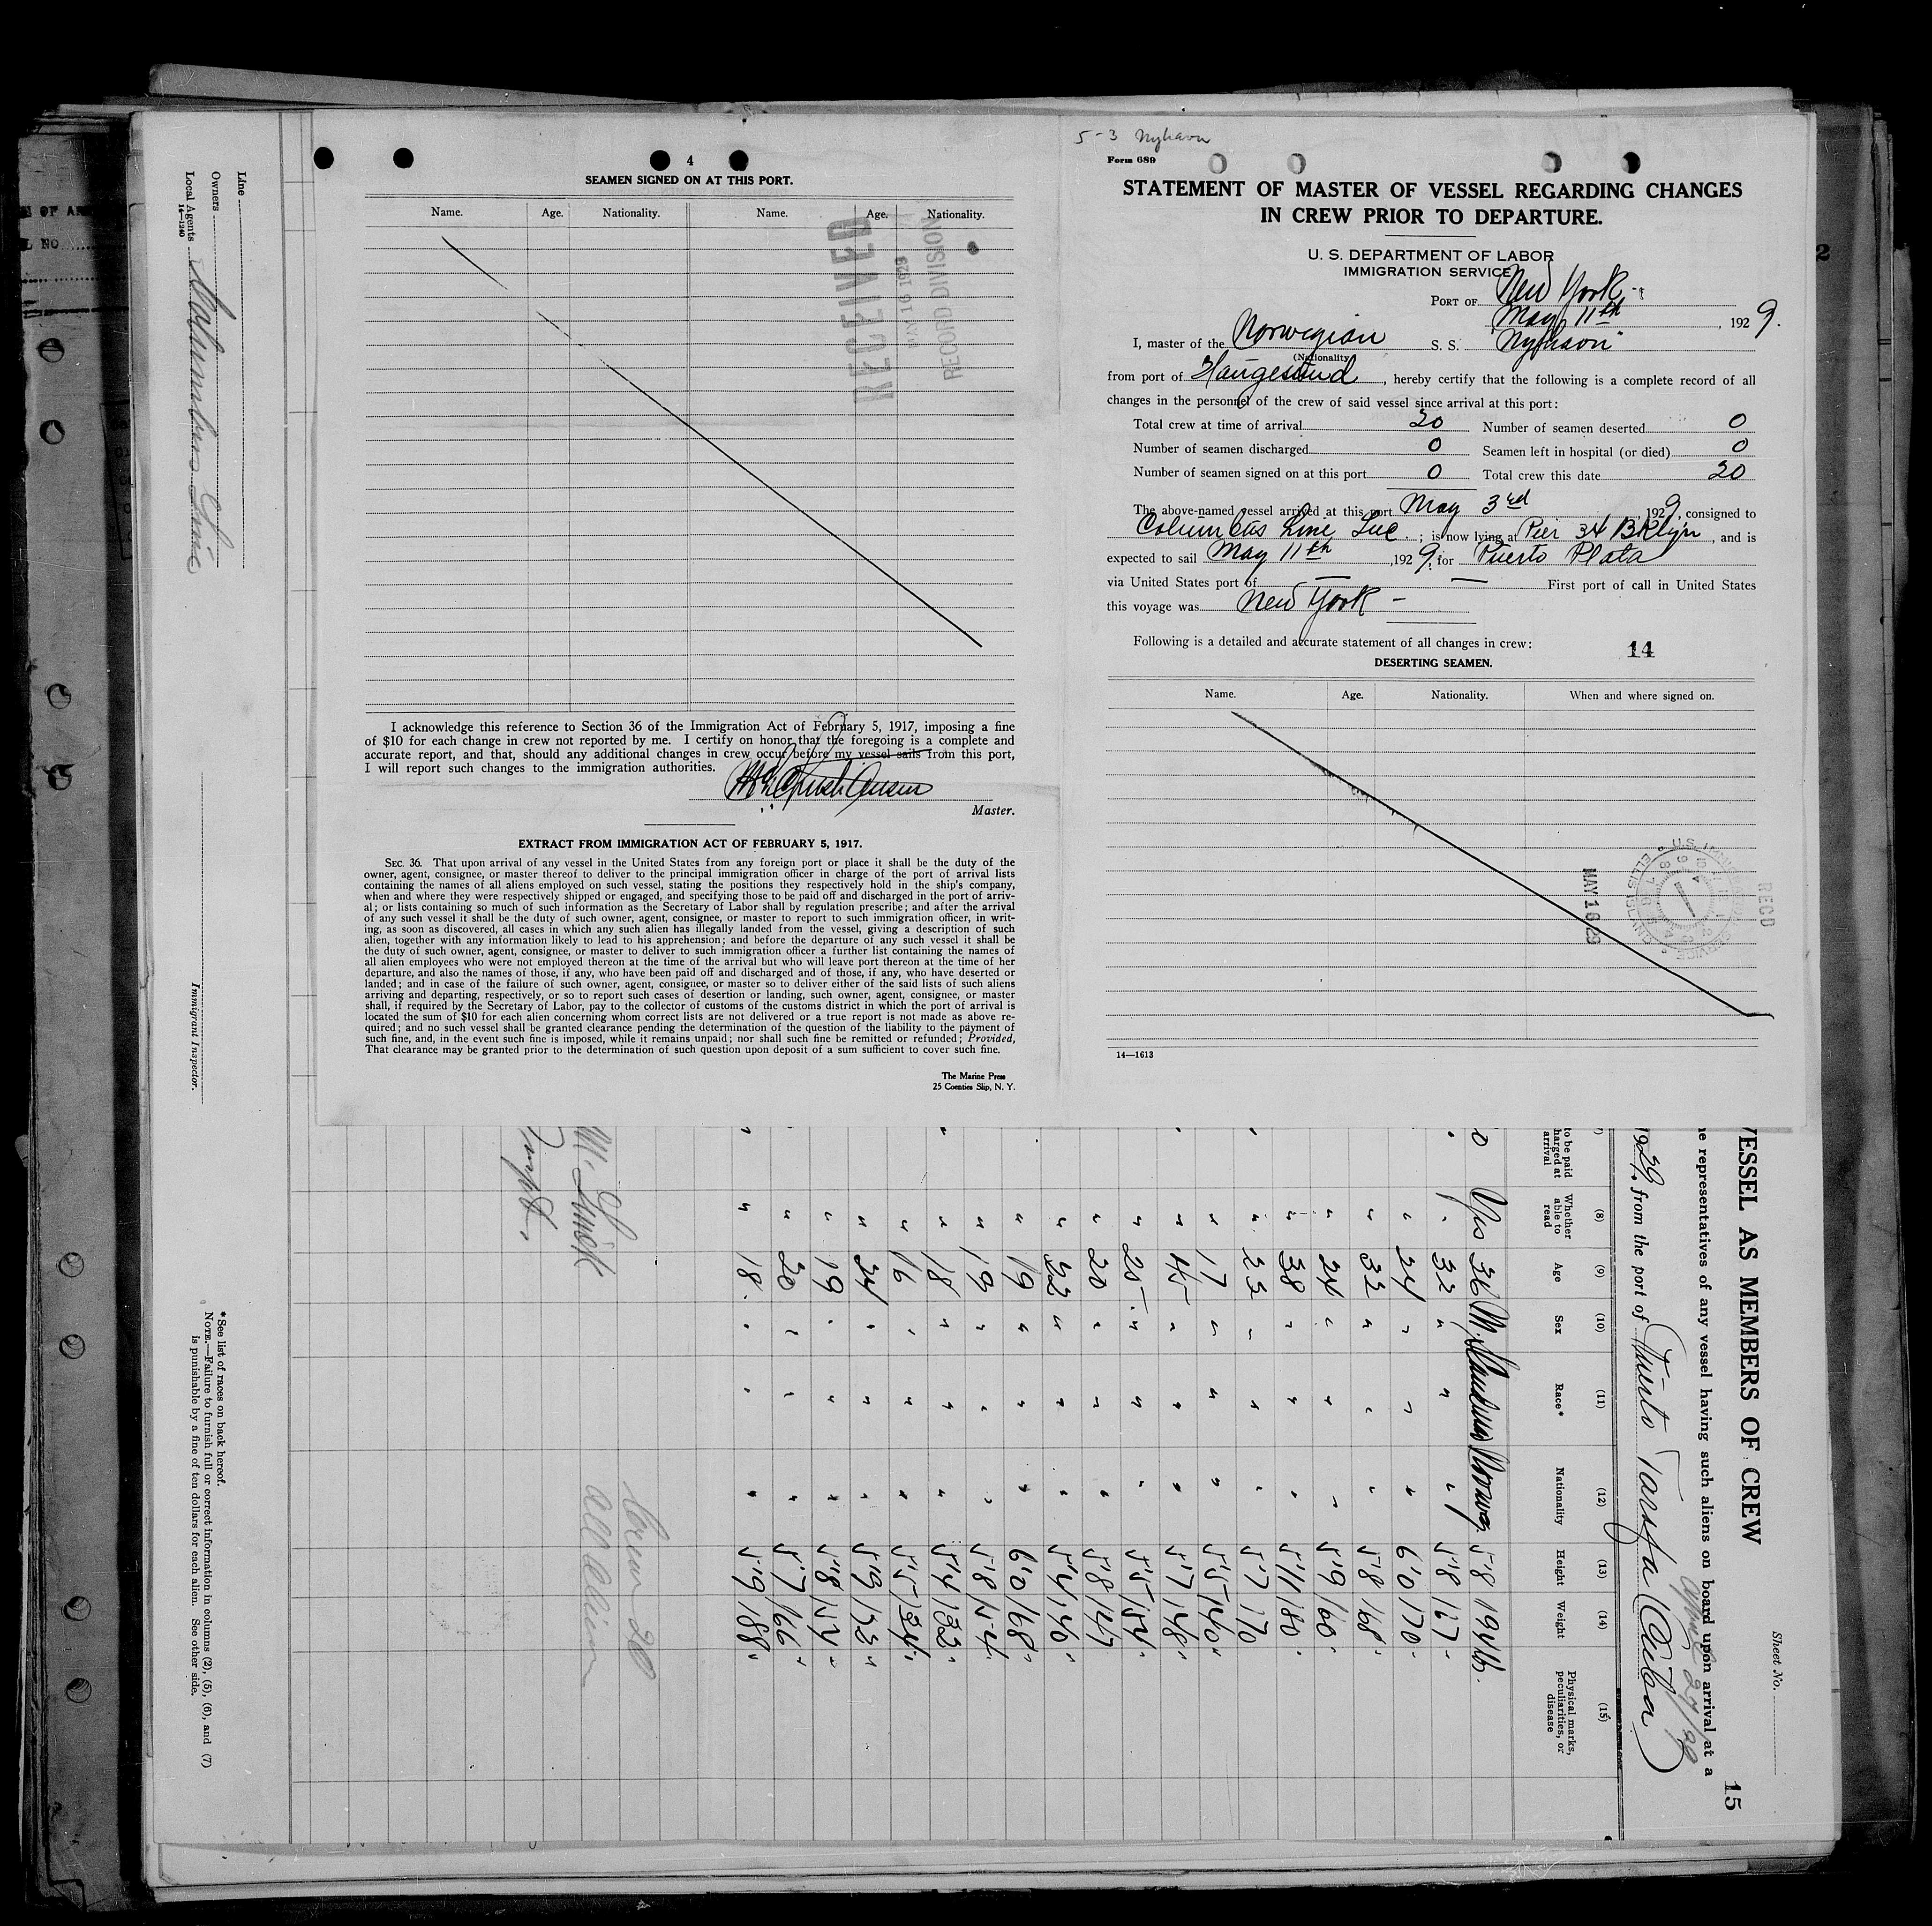 5-3 Nyhavn
4
SEAMEN SIGNED ON AT THIS PORT.
Name. Age. Nationality. Name. Age. Nationality.
RECEIVED
MAY 16 1929
RECORD DIVISION
I acknowledge this reference to Section 36 of the Immigration Act of February 5, 1917, imposing a fine
of $10 for each change in crew not reported by me. I certify on honor that the foregoing is a complete and
accurate report, and that, should any additional changes in crew occur before my vessel sails from this port,
I will report such changes to the immigration authorities.
Master.
EXTRACT FROM IMMIGRATION ACT OF FEBRUARY 5, 1917.
SEC. 36. That upon arrival of any vessel in the United States from any foreign port or place it shall be the duty of the
owner, agent, consignee, or master thereof to deliver to the principal immigration officer in charge of the port of arrival lists
containing the names of all aliens employed on such vessel, stating the positions they respectively hold in the ship's company,
when and where they were respectively shipped or engaged, and specifying those to be paid off and discharged in the port of arriv-
al; or lists containing so much of such information as the Secretary of Labor shall by regulation prescribe; and after the arrival
of any such vessel it shall be the duty of such owner, agent, consignee, or master to report to such immigration officer, in writ-
ing, as soon as discovered, all cases in which any such alien has illegally landed from the vessel, giving a description of such
alien, together with any information likely to lead to his apprehension; and before the departure of any such vessel it shall be
the duty of such owner, agent, consignee, or master to deliver to such immigration officer a further list containing the names of
all alien employees who were not employed thereon at the time of the arrival but who will leave port thereon at the time of her
departure, and also the names of those, if any, who have been paid off and discharged and of those, if any, who have deserted or
landed; and in case of the failure of such owner, agent, consignee, or master so to deliver either of the said lists of such aliens
arriving and departing, respectively, or so to report such cases of desertion or landing, such owner, agent, consignee, or master
shall, if required by the Secretary of Labor, pay to the collector of customs of the customs district in which the port of arrival is
located the sum of $10 for each alien concerning whom correct lists are not delivered or a true report is not made as above re-
quired; and no such vessel shall be granted clearance pending the determination of the question of the liability to the payment of
such fine, and, in the event such fine is imposed, while it remains unpaid; nor shall such fine be remitted or refunded; Provided,
That clearance may be granted prior to the determination of such question upon deposit of a sum sufficient to cover such fine.
The Marine Press
25 Coenties Slip, N. Y.
Form 689
STATEMENT OF MASTER OF VESSEL REGARDING CHANGES
IN CREW PRIOR TO DEPARTURE.
U. S. DEPARTMENT OF LABOR
IMMIGRATION SERVICE
PORT OF New York
May 11th, 1929.
I, master of the Norwegian S. S. "Nyhavn"
(Nationality)
from port of Haugesund, hereby certify that the following is a complete record of all
changes in the personnel of the crew of said vessel since arrival at this port:
Total crew at time of arrival 20 Number of seamen deserted 0
Number of seamen discharged 0 Seamen left in hospital (or died) 0
Number of seamen signed on at this port 0 Total crew this date 20
The above-named vessel arrived at this port May 3rd, 1929, consigned to
Columbus Line Inc.; is now lying at Pier 34 Bklyn, and is
expected to sail May 11th, 1929, for Puerto Plata
via United States port of — — First port of call in United States
this voyage was New York -
Following is a detailed and accurate statement of all changes in crew:
14
DESERTING SEAMEN.
Name. Age. Nationality. When and where signed on.
MAY 16 29
RECD
14—1613
Line
Owners
Local Agents Columbus Line
14—1240
Immigrant Inspector.
*See list of races on back hereof.
NOTE.—Failure to furnish full or correct information in columns (2), (5), (6), and (7)
is punishable by a fine of ten dollars for each alien. See other side.
Sheet No.
15
VESSEL AS MEMBERS OF CREW
representatives of any vessel having such aliens on board upon arrival at a
April 27/29
1929, from the port of Puerto Tarafa (Cuba)
(8) (9) (10) (11) (12) (13) (14) (15)
to be paid charged at arrival
Whether able to read
Age
Sex
Race*
Nationality
Height
Weight
Physical marks, peculiarities, or disease
Yes 36 M. Scandinav Norweg. 5'8 194 lb.
" 32 " " " 5'8 167 "
" 24 " " " 6'0 170 "
" 32 " " " 5'8 168 "
" 24 " " " 5'9 160 "
" 38 " " " 5'11 180 "
" 23 " " " 5'7 170
" 17 " " " 5'5 140 "
" 45 " " " 5'7 148 "
" 25 " " " 5'5 154 "
" 20 " " " 5'8 147
" 22 " " " 5'4 140 "
" 19 " " " 6'0 168 "
" 19 " " " 5'8 154
" 18 " " " 5'4 132 "
" 16 " " " 5'5 134 "
" 24 " " " 5'9 132 "
" 19 " " " 5'8 154 "
" 20 " " " 5'7 166 "
" 18 " " " 5'9 188 "
Crew 20
all alien